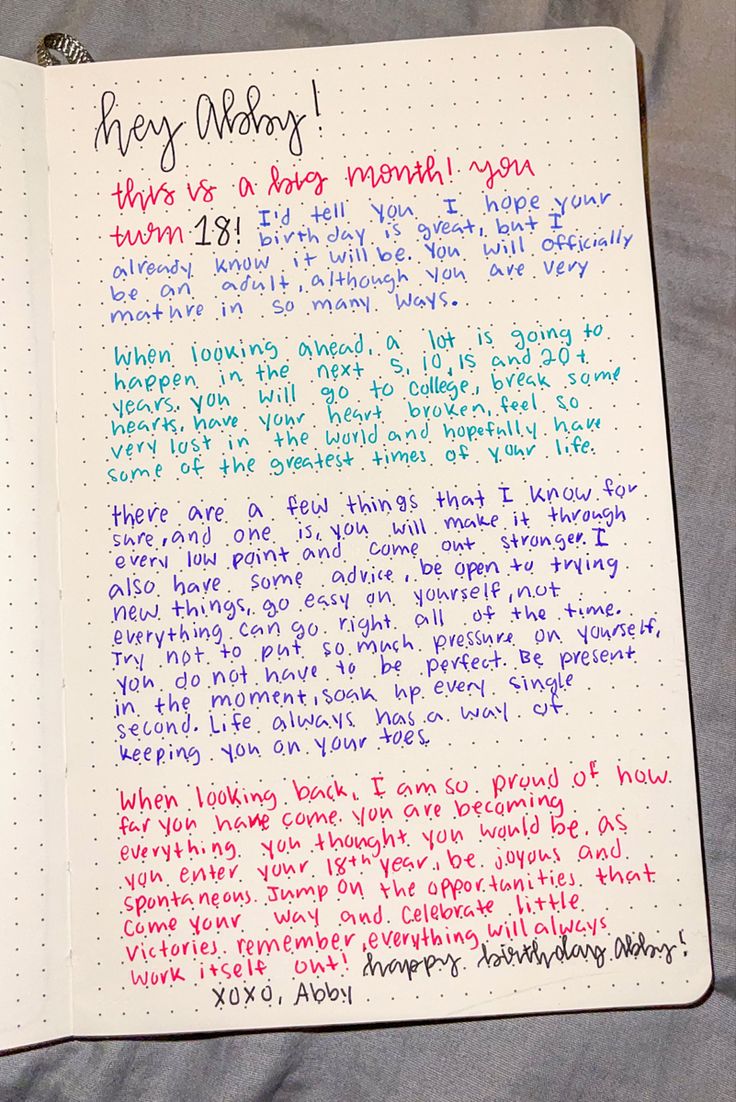 hey Abby!
this is a big month! you
turn 18! I'd tell you I hope your
birthday is great, but I
already know it will be. You will officially
be an adult, although you are very
mature in so many ways.
When looking ahead, a lot is going to
happen in the next 5, 10, 15 and 20+
years. you will go to college, break some
hearts, have your heart broken, feel so
very lost in the world and hopefully have
some of the greatest times of your life.
there are a few things that I know for
sure, and one is, you will make it through
every low point and come out stronger. I
also have some advice, be open to trying
new things, go easy on yourself, not
everything can go right all of the time.
Try not to put so much pressure on yourself,
you do not have to be perfect. Be present
in the moment, soak up every single
second. Life always has a way of
keeping you on your toes.
When looking back, I am so proud of how
far you have come. you are becoming
everything you thought you would be. as
you enter your 18th year, be joyous and
spontaneous. Jump on the opportunities that
come your way and celebrate little
victories. remember, everything will always
work itself out! happy birthday Abby!
XOXO, Abby